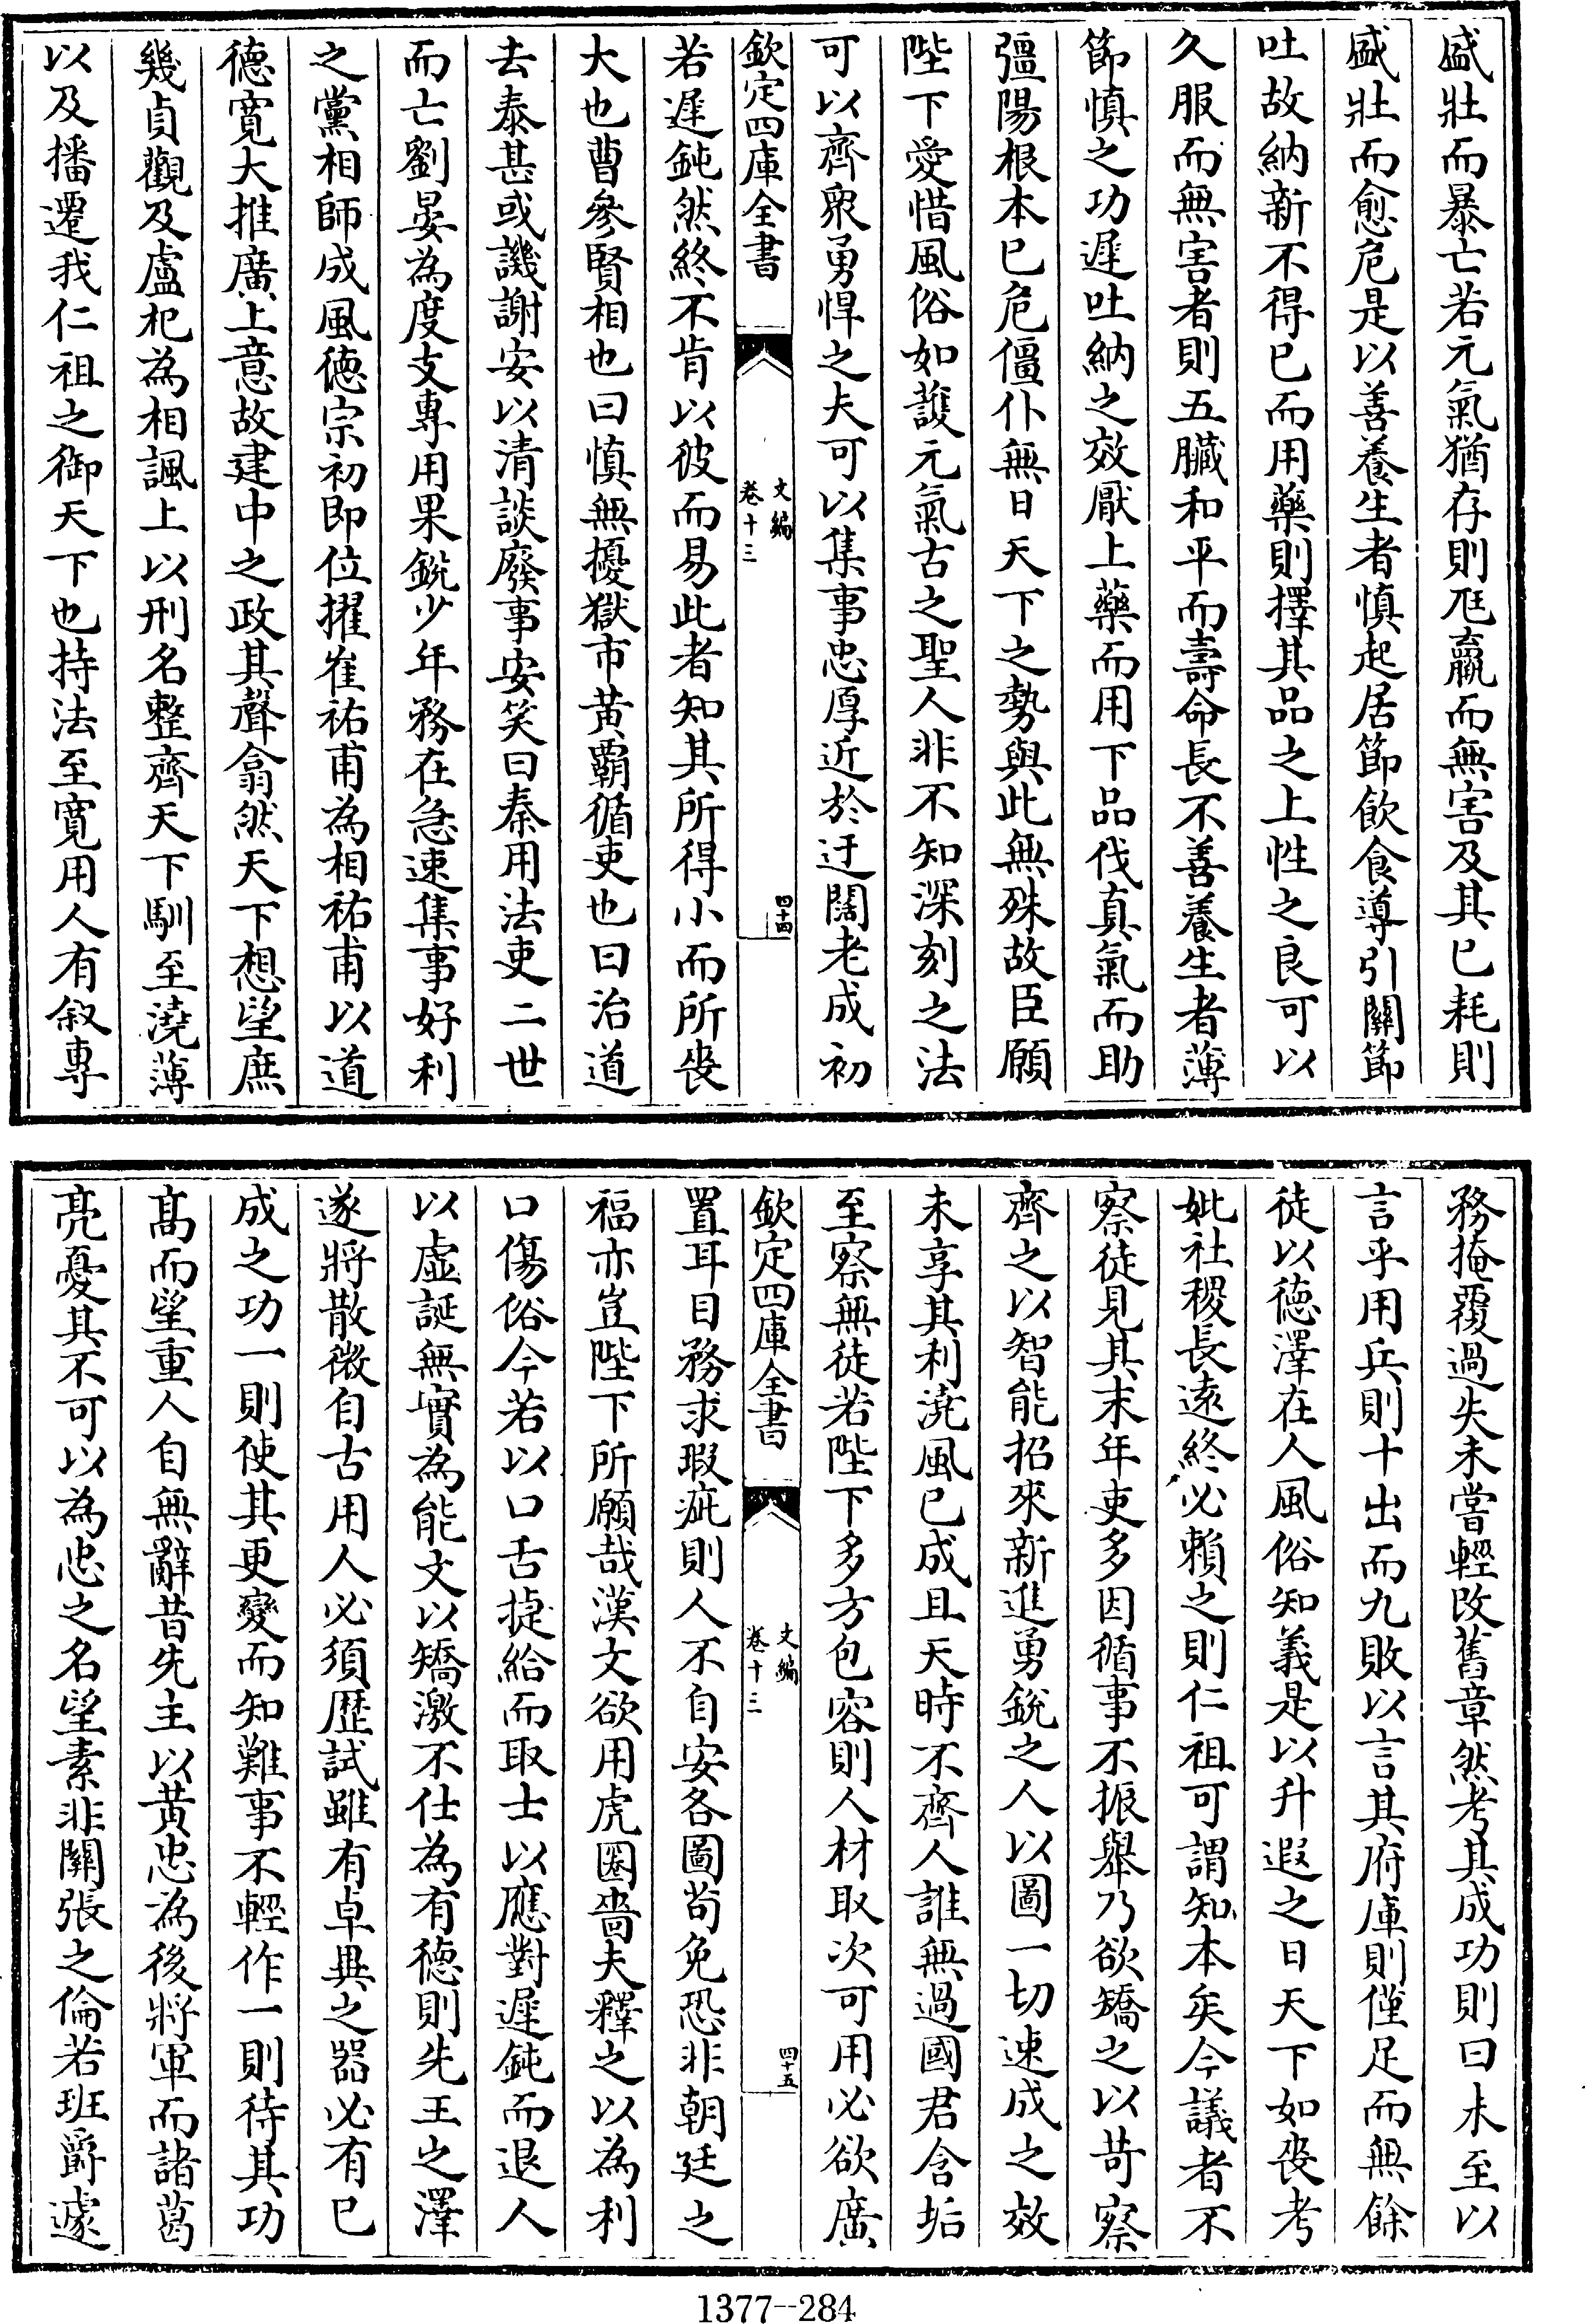 盛壯而暴亡若元氣猶存則尫羸而無害及其已耗則
盛壯而愈危是以善養生者慎起居節飲食導引關節
吐故納新不得已而用藥則擇其品之上性之良可以
久服而無害者則五臟和平而壽命長不善養生者薄
節慎之功遲吐納之效厭上藥而用下品伐真氣而助
彊陽根本已危僵仆無日天下之勢與此無殊故臣願
陛下愛惜風俗如䕶元氣古之聖人非不知深刻之法
可以齊衆勇悍之夫可以集事忠厚近於迂闊老成初
欽定四庫全書
文編
卷十三
四十四
若遲鈍然終不肯以彼而易此者知其所得小而所喪
大也曹參賢相也曰慎無擾獄市黃霸循吏也曰治道
去泰甚或譏謝安以清談廢事安笑曰秦用法吏二世
而亡劉晏為度支專用果銳少年務在急速集事好利
之黨相師成風德宗初即位擢崔祐甫為相祐甫以道
德寛大推廣上意故建中之政其聲翕然天下想望庶
幾貞觀及盧杞為相諷上以刑名整齊天下馴至澆薄
以及播遷我仁祖之御天下也持法至寛用人有叙專
務掩覆過失未嘗輕改舊章然考其成功則曰未至以
言乎用兵則十出而九敗以言其府庫則僅足而無餘
徒以德澤在人風俗知義是以升遐之日天下如喪考
妣社稷長逺終必賴之則仁祖可謂知本矣今議者不
察徒見其末年吏多因循事不振舉乃欲矯之以苛察
齊之以智能招來新進勇銳之人以圖一切速成之效
未享其利澆風已成且天時不齊人誰無過國君含垢
至察無徒若陛下多方包容則人材取次可用必欲廣
欽定四庫全書
文編
卷十三
四十五
置耳目務求瑕疵則人不自安各圖苟免恐非朝廷之
福亦豈陛下所願哉漢文欲用虎圈嗇夫釋之以為利
口傷俗今若以口舌捷給而取士以應對遲鈍而退人
以虛誕無實為能文以矯激不仕為有德則先王之澤
遂將散微自古用人必須歴試雖有卓異之器必有已
成之功一則使其更變而知難事不輕作一則待其功
髙而望重人自無辭昔先主以黃忠為後將軍而諸葛
亮憂其不可以為忠之名望素非關張之倫若班爵遽
1377--284